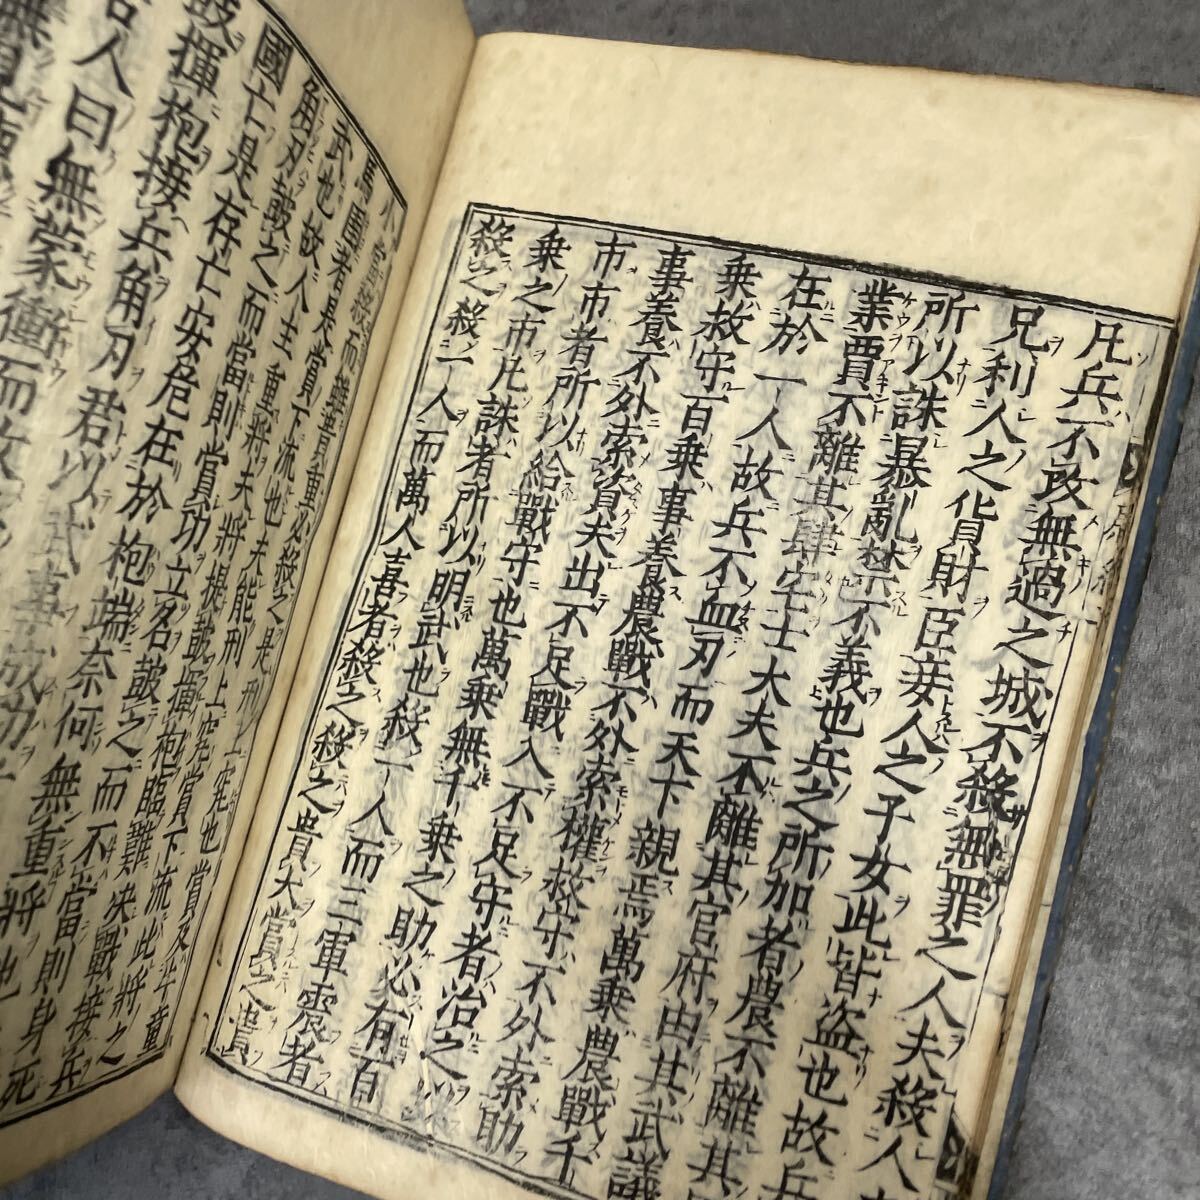 凡兵不攻無過之城不殺無罪之人夫殺人
兄利人之貨財臣妾人之子女此皆盜也故兵
所以誅暴亂禁不義也兵之所加者農不離其
業賈不離其肆宅士大夫不離其官府由其武議
在於一人故兵不血刃而天下親焉萬乘農戰千
乘救守百乘事養農戰不外索權救守不外索助
事養不外索資夫出不足戰入不足守者治之以
市市者所以給戰守也萬乘無千乘之助必有百
乘之市凡誅者所以明武也殺一人而三軍震者
殺之殺一人而萬人喜者殺之殺之貴大賞之貴
小當殺而雖貴重必殺之是刑上究也賞及牛童
馬圉者是賞下流也夫能刑上究賞下流此將之
武也故人主重將夫將提鼓揮枹臨難決戰接兵
角刃鼓之而當則賞功立名鼓之而不當則身死
國亡是存亡安危在於枹端奈何無重將也
鼓揮枹接兵角刃君以武事成功
人曰無蒙衝而攻